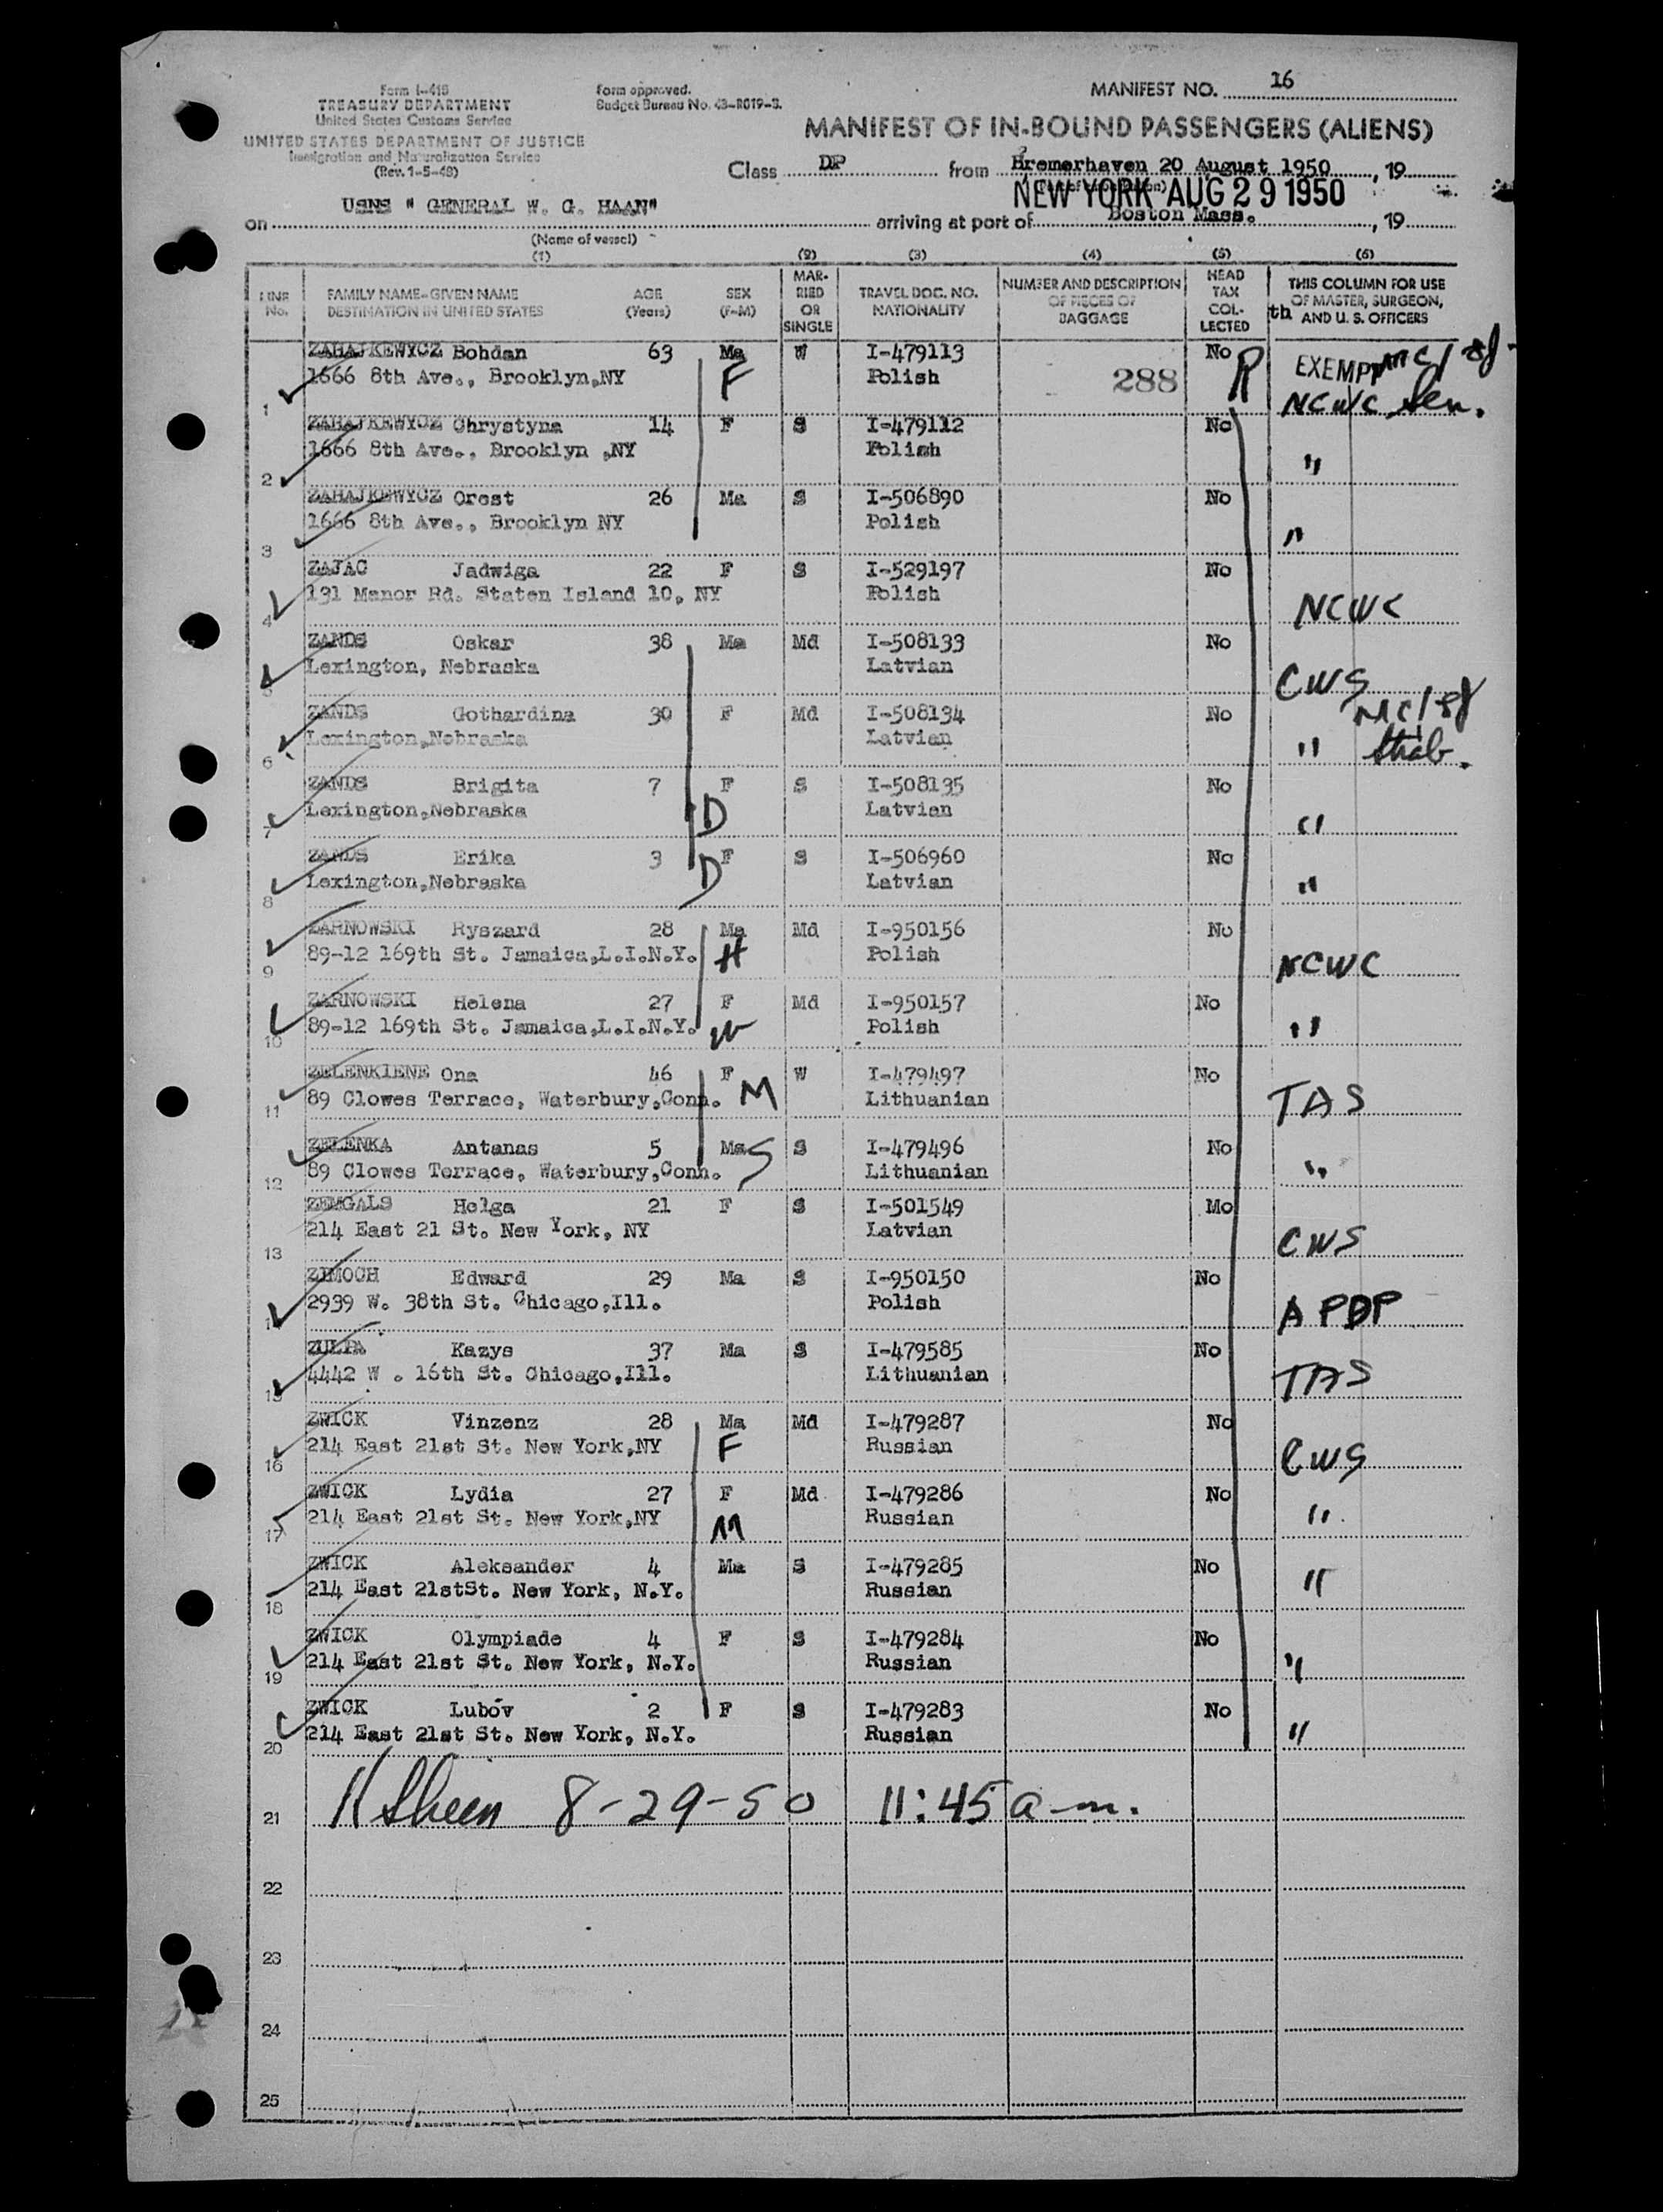 Form I-415
TREASURY DEPARTMENT
United States Customs Service
UNITED STATES DEPARTMENT OF JUSTICE
Immigration and Naturalization Service
(Rev. 1-5-48)
Form approved.
Budget Bureau No. 43-R019-3.
MANIFEST NO. 16
MANIFEST OF IN-BOUND PASSENGERS (ALIENS)
Class DP from Bremerhaven 20 August 1950, 19
NEW YORK AUG 29 1950
on USNS " GENERAL W. G. HAAN" arriving at port of Boston Mass., 19
(Name of vessel)
(1) (2) (3) (4) (5) (6)
LINE No. FAMILY NAME-GIVEN NAME DESTINATION IN UNITED STATES AGE (Years) SEX (F-M) MARRIED OR SINGLE TRAVEL DOC. NO. NATIONALITY NUMBER AND DESCRIPTION OF PIECES OF BAGGAGE HEAD TAX COLLECTED th THIS COLUMN FOR USE OF MASTER, SURGEON, AND U. S. OFFICERS
ZAHAJKEWYCZ Bohdan 63 Ma W I-479113 No R EXEMPT
1 1666 8th Ave., Brooklyn,NY F Polish 288 NCWC
ZAHAJKEWYCZ Chrystyna 14 F S I-479112 No
2 1666 8th Ave., Brooklyn ,NY Polish "
ZAHAJKEWYCZ Orest 26 Ma S I-506890 No
3 1666 8th Ave., Brooklyn NY Polish "
ZAJAC Jadwiga 22 F S I-529197 No
4 131 Manor Rd. Staten Island 10, NY Polish NCWC
ZANDS Oskar 38 Ma Md I-508133 No
5 Lexington, Nebraska Latvian CWS
ZANDS Gothardina 30 F Md I-508134 No
6 Lexington,Nebraska Latvian "
ZANDS Brigita 7 F S I-508135 No
7 Lexington,Nebraska D Latvian "
ZANDS Erika 3 F S I-506960 No
8 Lexington,Nebraska D Latvian "
ZARNOWSKI Ryszard 28 Ma Md I-950156 No
9 89-12 169th St. Jamaica,L.I.N.Y. H Polish NCWC
ZARNOWSKI Helena 27 F Md I-950157 No
10 89-12 169th St. Jamaica,L.I.N.Y. W Polish "
ZELENKIENE Ona 46 F W I-479497 No
11 89 Clowes Terrace, Waterbury,Conn. M Lithuanian TAS
ZELENKA Antanas 5 Ma S S I-479496 No
12 89 Clowes Terrace, Waterbury,Conn. Lithuanian "
ZEMGALS Helga 21 F S I-501549 Mo
13 214 East 21 St. New York, NY Latvian CWS
ZIMOCH Edward 29 Ma S I-950150 No
14 2939 W. 38th St. Chicago,Ill. Polish APDP
ZULPA Kazys 37 Ma S I-479585 No
15 4442 W . 16th St. Chicago,Ill. Lithuanian TAS
ZWICK Vinzenz 28 Ma Md I-479287 No
16 214 East 21st St. New York,NY F Russian CWS
ZWICK Lydia 27 F Md I-479286 No
17 214 East 21st St. New York,NY M Russian "
ZWICK Aleksander 4 Ma S I-479285 No
18 214 East 21stSt. New York, N.Y. Russian "
ZWICK Olympiade 4 F S I-479284 No
19 214 East 21st St. New York, N.Y. Russian "
ZWICK Lubov 2 F S I-479283 No
20 214 East 21st St. New York, N.Y. Russian "
21 8-29-50 11:45 a-m.
22
23
24
25